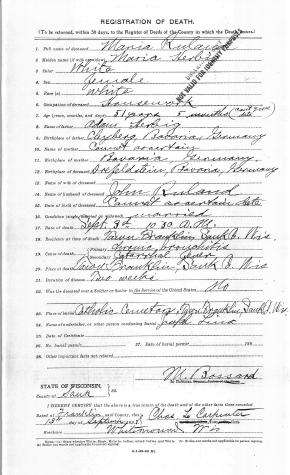 REGISTRATION OF DEATH.
(To be returned, within 30 days, to the Register of Deeds of the County in which the Death occurs.)
1. Full name of deceased Maria Ruland
2. Maiden name (if wife or widow) Maria Herbig
3. White
4. Sex Female
5. Race White
6. Occupation of deceased Housework
7. Age (years, months, and days) 51 years 5 months (can't give date
8. Name of father Adam Herbig
9. Birthplace of father Bavaria, Germany
10. Name of mother Cannot ascertain
11. Birthplace of mother Bavaria, Germany
12. Birthplace of deceased Bavaria, Germany
13. Name of wife of deceased
14. Name of husband of deceased John Ruland
15. Date of birth of deceased Cannot ascertain date
16. Condition married
17. Sept. 3d 10 30 A.M.
18. Residence at time of death Town Franklin Sauk Co. Wis.
19. Cause of death Primary Chronic Bronchitis
Secondary Catarrhal Fever
20. Place of death Town Franklin, Sauk Co. Wis
21. Duration of disease Two weeks
22. Was the deceased ever a Soldier or Sailor in the Service of the United States? No
23. Place of burial Catholic Cemetery, Town Franklin, Sauk Co. Wis.
24. Name of undertaker, or other person conducting burial Joseph
25. No. burial permit
27. Date of burial permit
28. Other important facts not related
M. Bossard
STATE OF WISCONSIN,
Sauk
ss.
I HEREBY CERTIFY that the above is a true return of the death and of the other facts there recorded
Dated at Franklin, said County, this
13th September
Chas. L. Carpenter
Wis